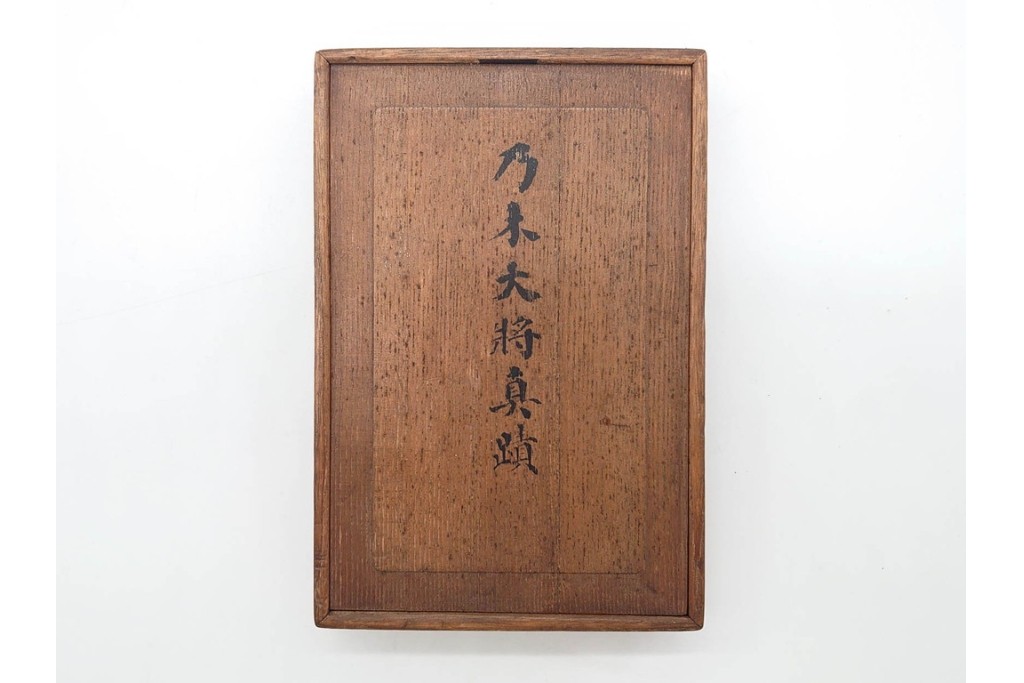 乃木大將真蹟